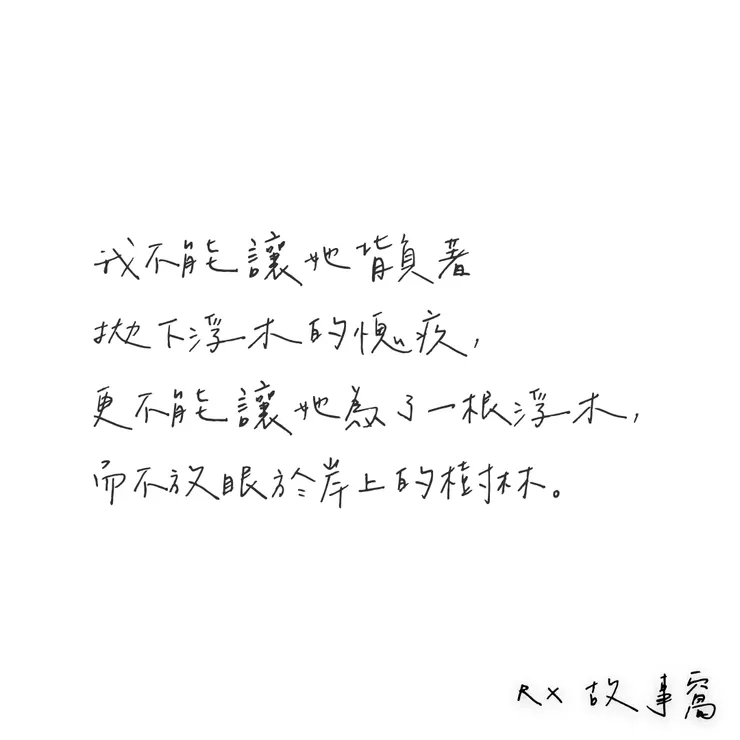 我不能讓她背負著
拋下浮木的愧疚，
更不能讓她為了一根浮木，
而不放眼於岸上的樹林。
RX 故事窩